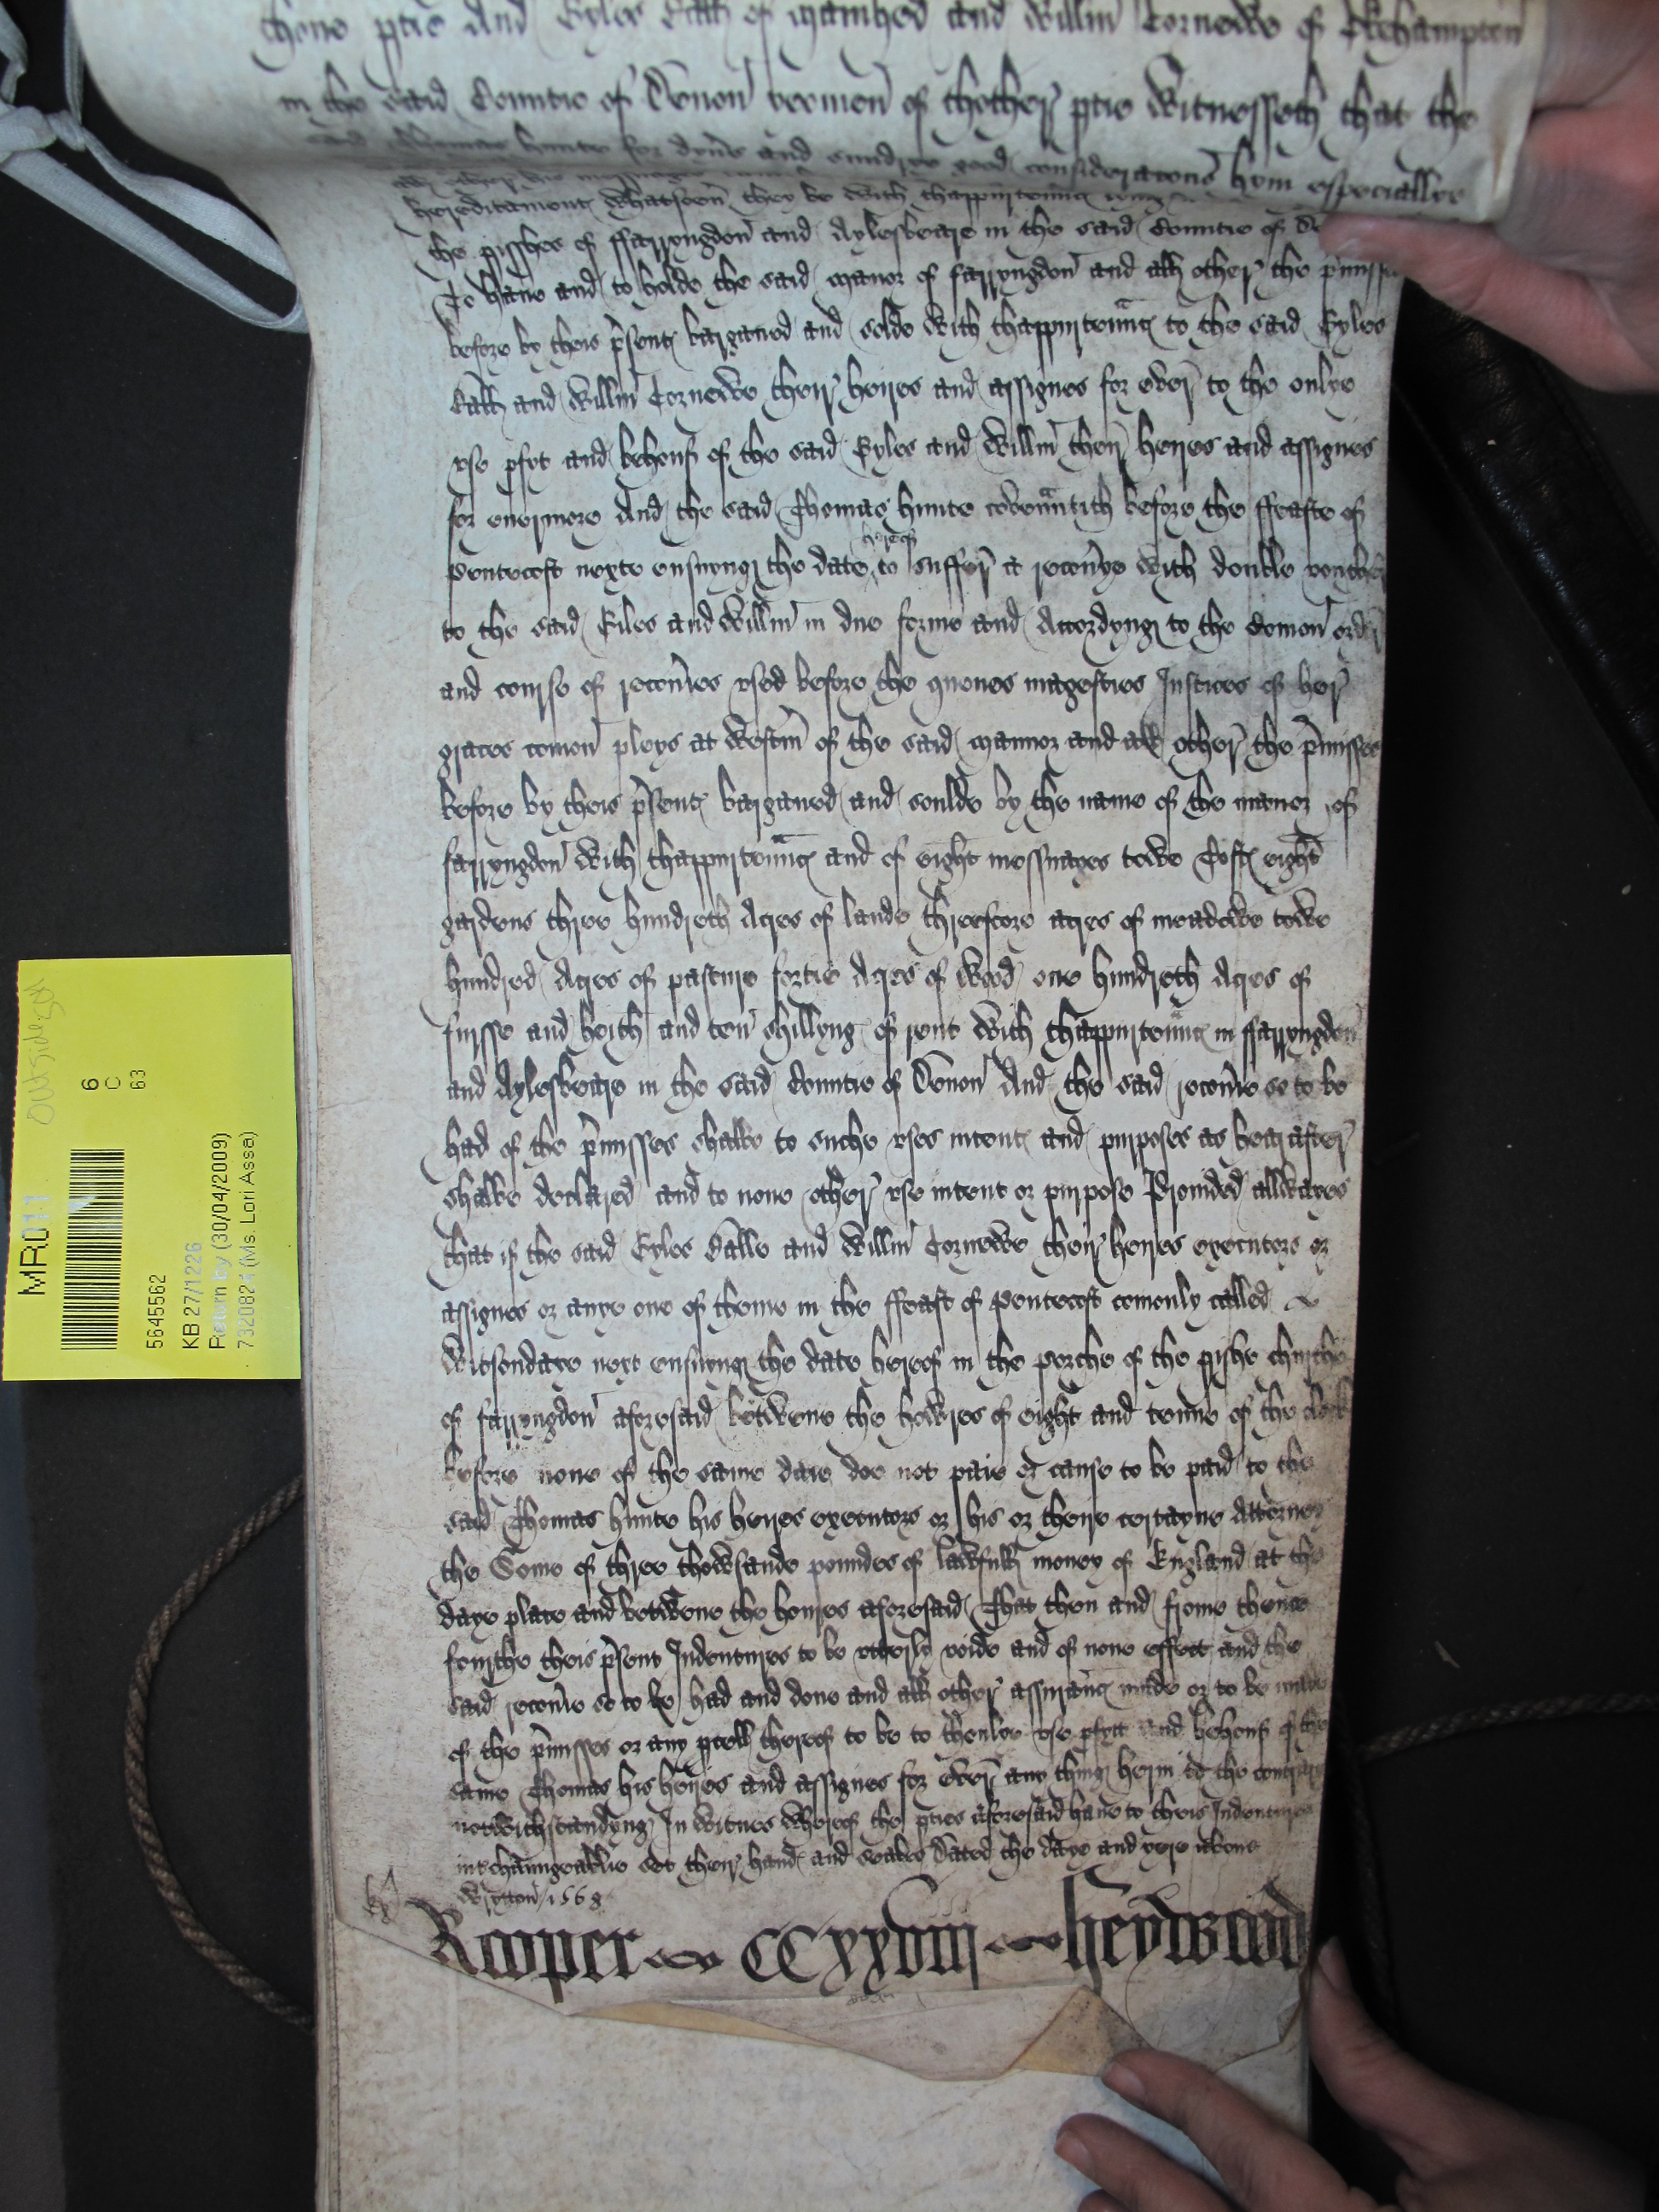 thone ptie And Gyles Ball of mamhed and Willm Cornewe of Okehampton
in the said Countie of Devon yeomen of thother ptie Witnesseth that the
said Thomas hunte for dyvs and sundrye good consideracons hym especiallye
hereditament whatsoev they be with thappurtennc
the pisshes of ffarryngdon and Aylesbeare in the said Countie of
To have and to holde the said manor of farryngdon and all other the pmisses
before by theis psent bargayned and solde with thappurtennc to the said Gyles
Ball and Willm Cornewe their heires and assignes for ever to the onlye
vse pfyt and behouf of the said Gyles and Willm their heires and assignes
for evermore And the said Thomas hunte covenntith before the ffeaste of
Pentecost nexte ensuyng the date hereof to suffer a recovye with double voucher
to the said Giles and Willm in due forme and Accordyng to the Comon order
and course of recovies vsed before the quenes magesties Justices of her
graces comon pleys at Westm of the said mannor and all other the pmisses
before by theis psent bargayned and soulde by the name of the manor of
farryngdon with thappurtennc and of eight messuages towe Toft eight
gardens three hundreth Acres of lande threescore acres of meadowe towe
hundred Acres of pasture fortie Acres of wood one hundreth Acres of
fursse and heith and ten shillyng of rent with thappurtennc in ffarryngdon
and Aylesbeare in the said Countie of Devon And the said recovie so to be
had of the pmisses shalbe to suche vses intent and purposes as hearafter
shalbe declared and to none other vse intent or purpose Provided allwayes
that if the said Gyles Balle and Willm Cornewe their heires executors or
assignes or anye one of theme in the ffeast of Pentecost comonly called
Witsondaye next ensuyng the date hereof in the porche of the pishe churche
of farryngdon aforesaid betwene the howres of eight and tenne of the clock
before none of the same daie doe not paie or cause to be paid to the
said Thomas hunte his heires executors or his or theire certayne Attorney
the Some of three thowsande poundes of lawfull money of England at the
daye place and betwene the houres aforesaid That then and frome thence
fourthe theis psent Indentures to be vtterly voide and of none effect and the
said recovie so to be had and done and all other assurnc made or to be made
of the pmisses or any pcell thereof to be to thonlye vse pfytt and behouf of the
same Thomas his heires and assignes for ever any thing herin to the contrary
notwithstandyng In witnes whereof the pties aforesaid have to theis Indentures
intchaungeablie set their hand and seales Dated the daye and yere above
wrytton 1568
Rooper CCxxviij heyward
MR011
outsidegot
6
C
63
5645562
KB 27/1226
Return by (30/04/2009)
7320824 (Ms. Lori Assa)